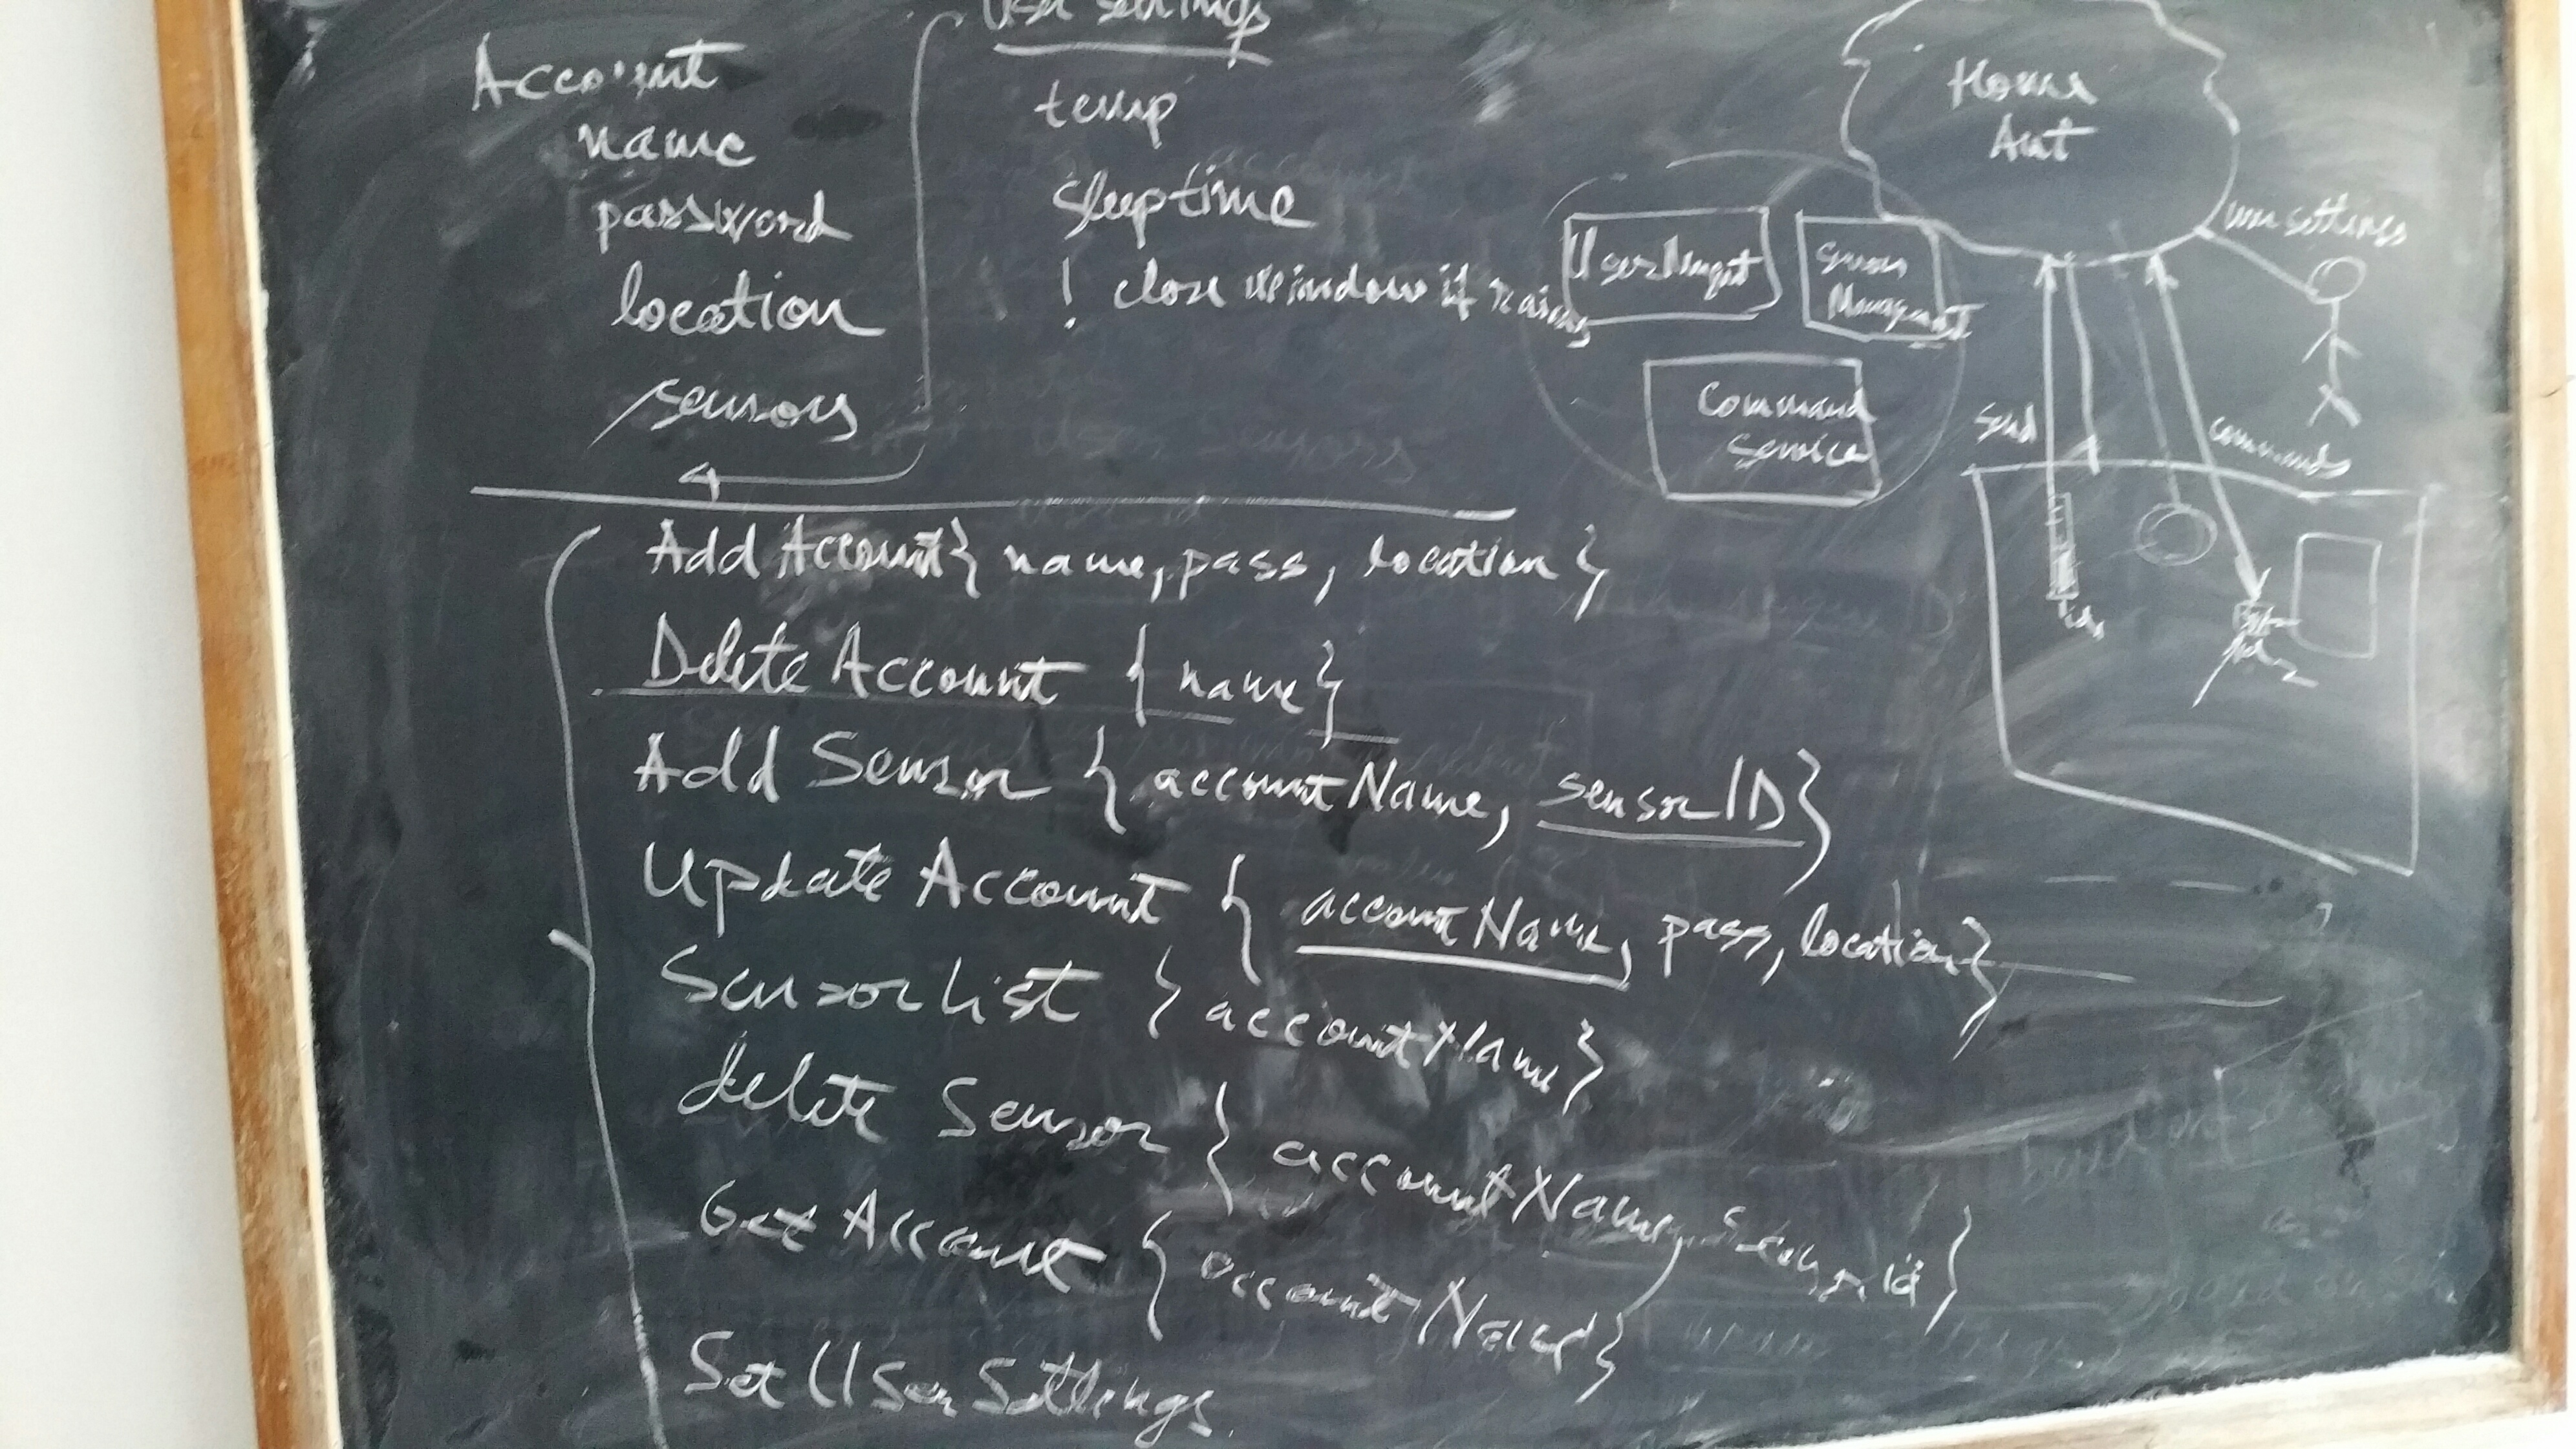 Account
name
password
location
sensors
User settings
temp
sleeptime
! close window if rains
User Mngnt
Sensor
Management
Command
Service
Home
Aut
user settings
send
commands
Add Account { name, pass, location }
Delete Account { name }
Add Sensor { accountName, sensorID }
Update Account { accountName, pass, location }
Sensor List { accountName }
delete Sensor { accountName, Sensor id }
Get Account { accountName }
Set User Settings